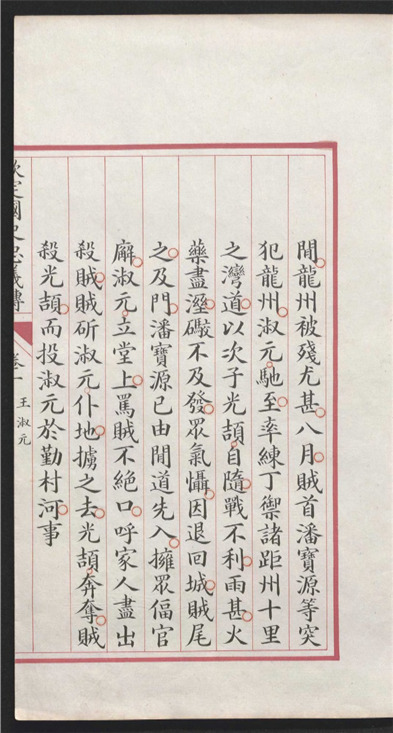 間龍州被殘尤甚八月賊首潘寶源等突
犯龍州淑元馳至率練丁禦諸距州十里
之灣道以次子光頡自隨戰不利雨甚火
藥盡溼礮不及發眾氣懾因退回城賊尾
之及門潘寶源已由閒道先入擁眾偪官
廨淑元立堂上罵賊不絕口呼家人盡出
殺賊賊斫淑元仆地擄之去光頡奔奪賊
殺光頡而投淑元於勤村河事
欽定國史忠義傳
卷一
王淑元